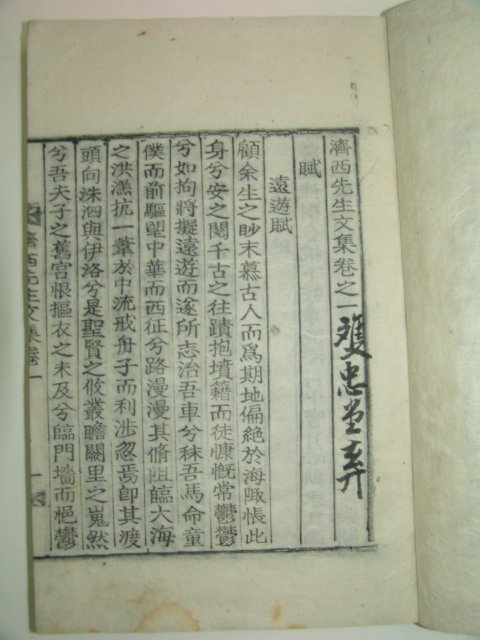 濟西先生文集卷之一
雙忠堂弆
賦
遠遊賦
顧余生之眇末慕古人而爲期地偏絶於海陬悵此
身兮安之閱千古之往蹟抱墳籍而徒慷慨常鬱鬱
兮如拘將擬遠遊而遂所志治吾車兮秣吾馬命童
僕而前驅望中華而西征兮路漫漫其脩阻臨大海
之洪瀁抗一葦於中流戒舟子而利涉忽焉卽其渡
頭向洙泗與伊洛兮是聖賢之攸叢瞻闕里之嵬然
兮吾夫子之舊宮恨摳衣之未及兮臨門墻而悒鬱
濟西先生文集卷一